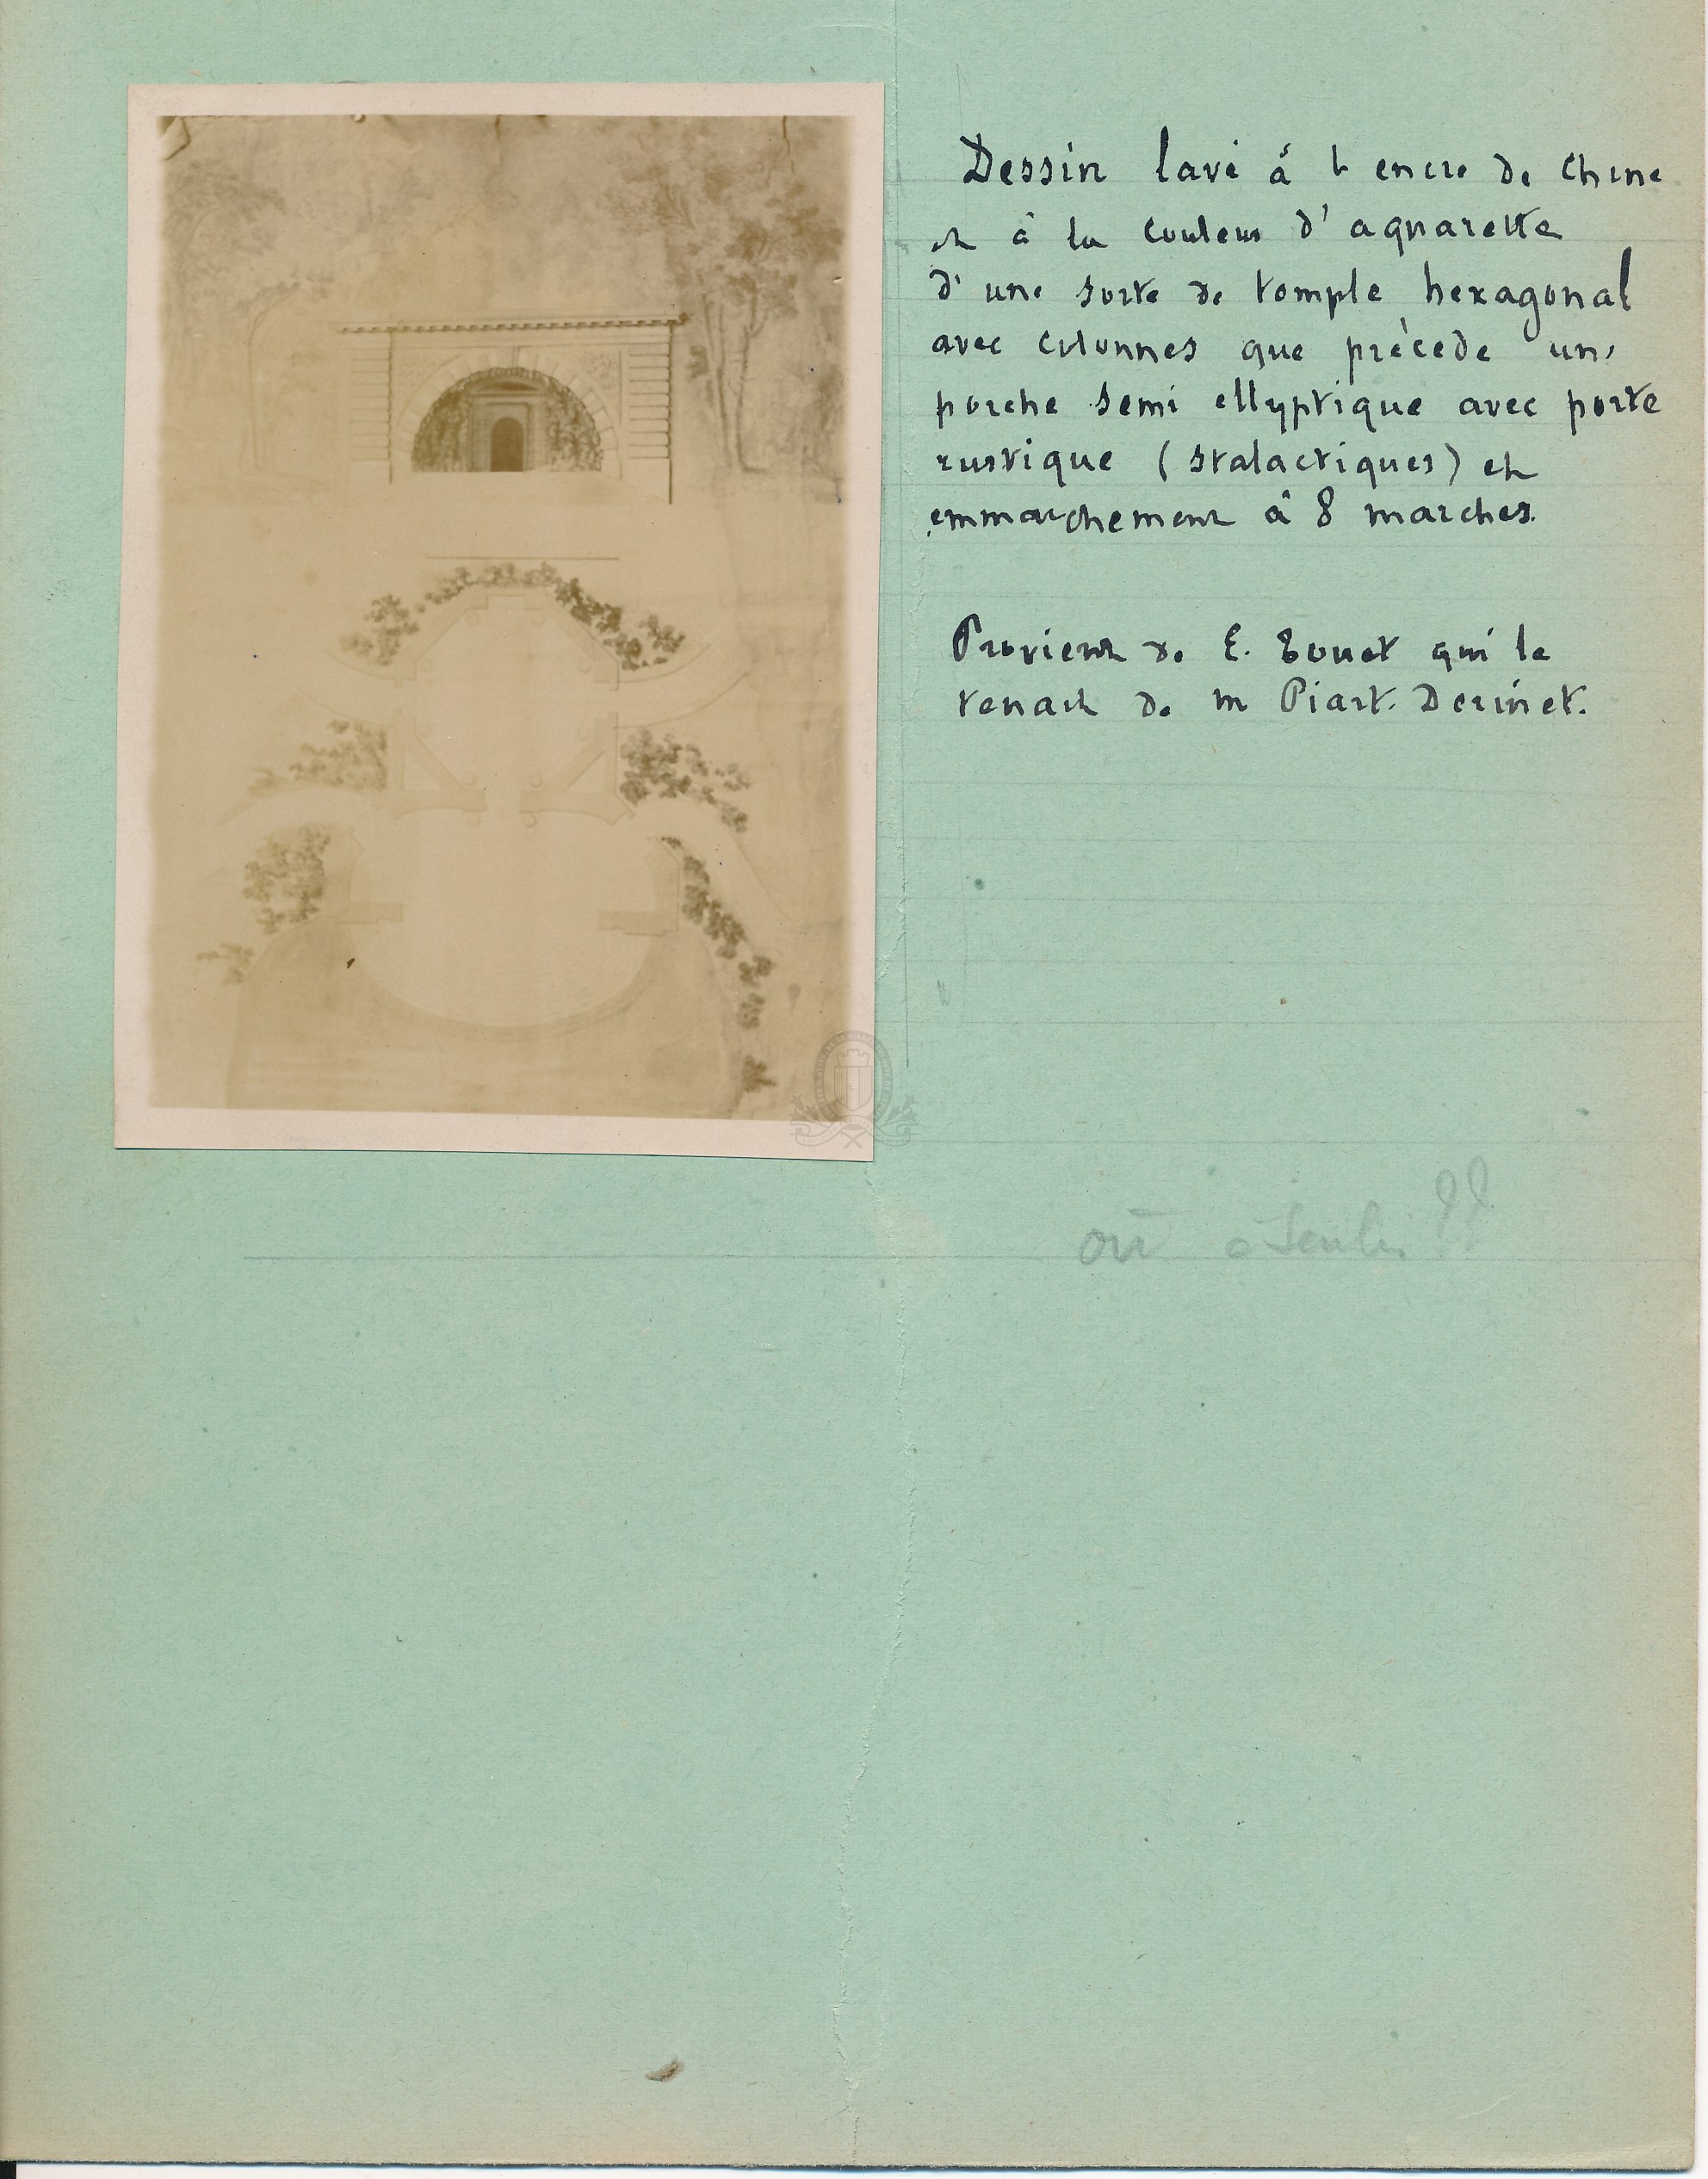 Dessin lavé à l encre de Chine
et à la couleur d'aquarelle
d'une sorte de temple hexagonal
avec colonnes que précède un
porche semi ellyptique avec porte
rustique (stalactiques) et
emmarchement à 8 marches.
Provient de E. Touet qui le
tenait de m Piart. Derinet.
où à Senlis ??